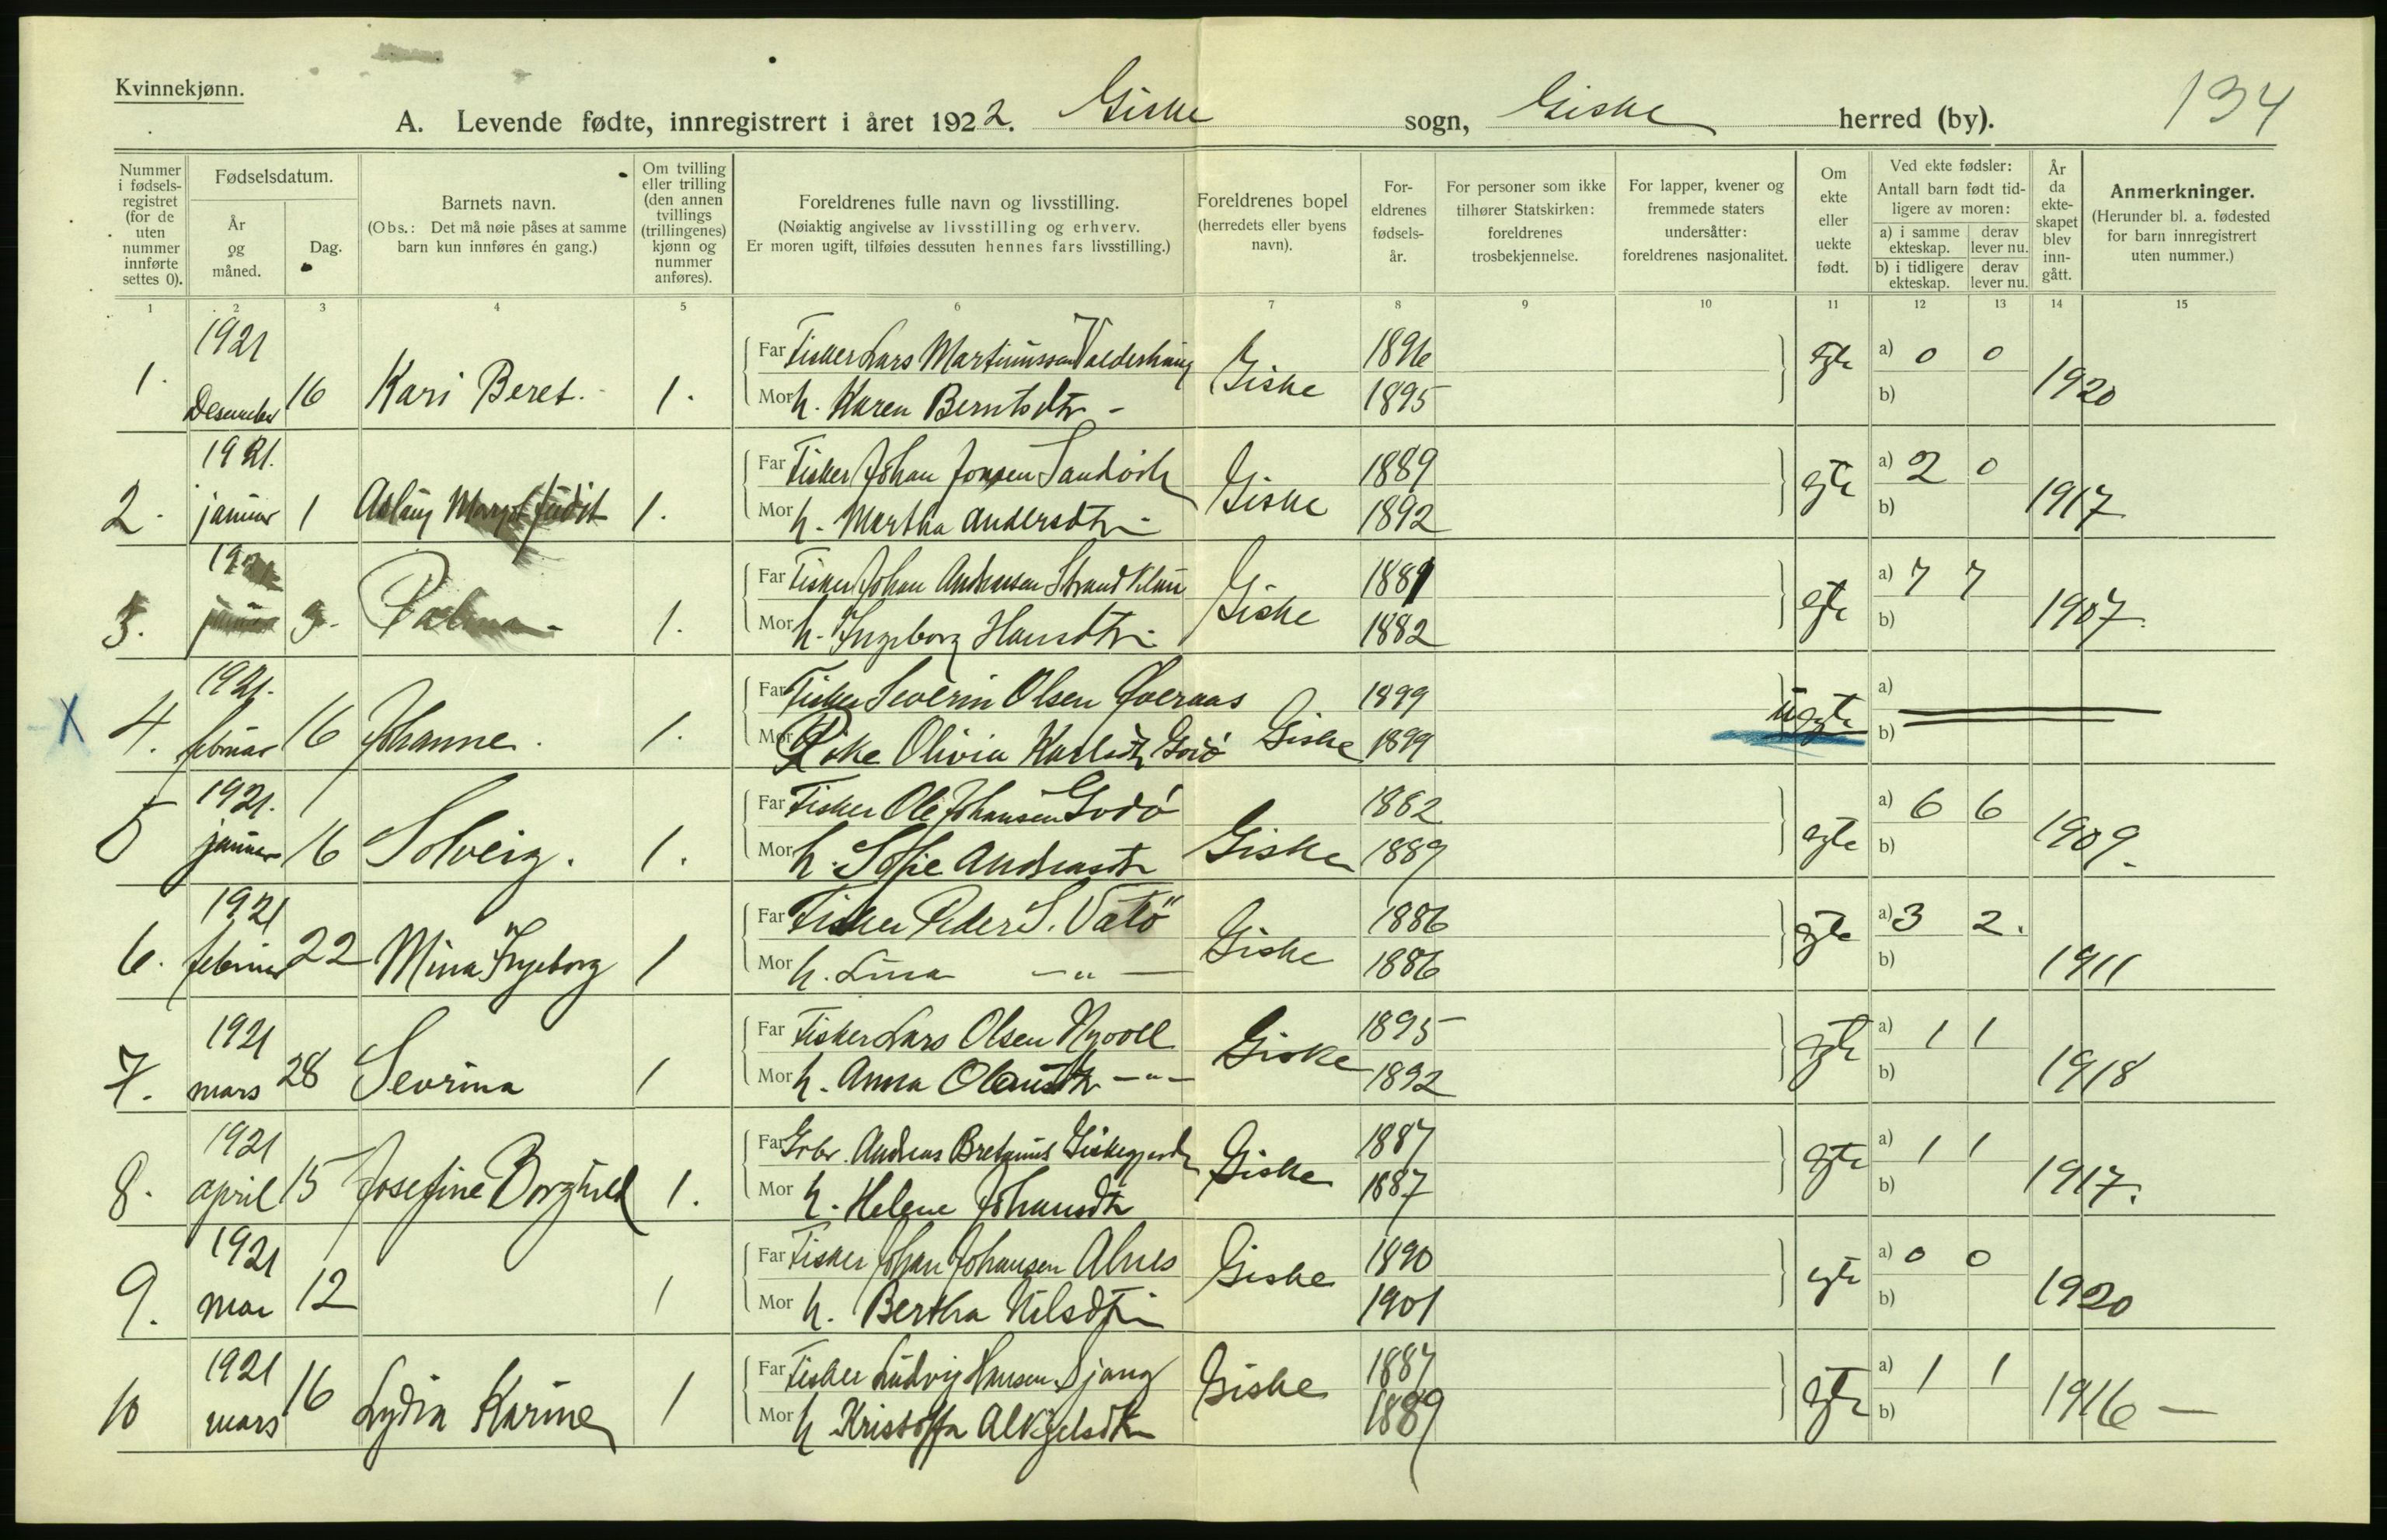 Kvinnekjønn.
134
A. Levende fødte, innregistrert i året 1922. Giske sogn, Giske herred (by).
Nummer i fødsels-registret (for de uten nummer innførte settes 0).
Fødselsdatum.
År og måned.
Dag.
Barnets navn.
(Obs.: Det må nøie påses at samme barn kun innføres én gang.)
Om tvilling eller trilling (den annen tvillings (trillingenes) kjønn og nummer anføres).
Foreldrenes fulle navn og livsstilling.
(Nøiaktig angivelse av livsstilling og erhverv.
Er moren ugift, tilføies dessuten hennes fars livsstilling.)
Foreldrenes bopel
(herredets eller byens navn).
For-eldrenes fødsels-år.
For personer som ikke tilhører Statskirken: foreldrenes trosbekjennelse.
For lapper, kvener og fremmede staters undersåtter: foreldrenes nasjonalitet.
Om ekte eller uekte født.
Ved ekte fødsler:
Antall barn født tid-ligere av moren:
a) i samme ekteskap. derav lever nu.
b) i tidligere ekteskap. derav lever nu.
År da ekte-skapet blev inn-gått.
Anmerkninger.
(Herunder bl. a. fødested for barn innregistrert uten nummer.)
1 2 3 4 5 6 7 8 9 10 11 12 13 14 15
1921 Far Fisker Lars Martinussen Valderhaug 1896 a) 0 0
1. Desember 16 Kari Beret. 1. Mor h. Karen Berntsdtr - Giske 1895 egte b) 1920
1921. Far Fisker Johan Jonsen Sandvik 1889 a) 2 0
2. januar 1 Aslaug Margot Judit 1. Mor h. Martha Andersdtr - Giske 1892 egte b) 1917
1921 Far Fisker Johan Andreasen 1881 a) 7 7
3. januar 9. Palma - 1. Mor h. Ingeborg Hansdtr - Giske 1882 egte b) 1907.
1921. Far Fisker Severin Olsen 1899 a)
X 4. februar 16 Johanne. 1. Mor Pike Olivia Karlsdtr Godø Giske 1899 uegte b)
1921. Far Fisker Ole Johansen Godø 1882 a) 6 6
5 januar 16 Solveig. 1. Mor h. Sofie Andreasdtr Giske 1889 egte b) 1909.
1921 Far Fisker Peder S. Vatø 1886 a) 3 2.
6. februar 22 Mina Ingeborg 1 Mor h. Lina - " - Giske 1886 egte b) 1911
1921 Far Fisker Lars Olsen Nyvoll 1895 a) 1 1
7. mars 28 Sevrina 1 Mor h. Anna - " - Giske 1892 egte b) 1918
1921 Far Gbr. Andreas Giskegjerde 1887 a) 1 1
8. april 15 Josefine Borghild 1. Mor h. Helene Johansdtr Giske 1887 egte b) 1917.
1921 Far Fisker Johan Johansen Alnes 1890 a) 0 0
9. mai 12 1 Mor h. Bertha Nilsdtr Giske 1901 egte b) 1920
1921 Far Fisker Ludvig Hansen 1887 a) 1 1
10 mars 16 Lydia Karine 1 Mor h Giske 1889 egte b) 1916 -